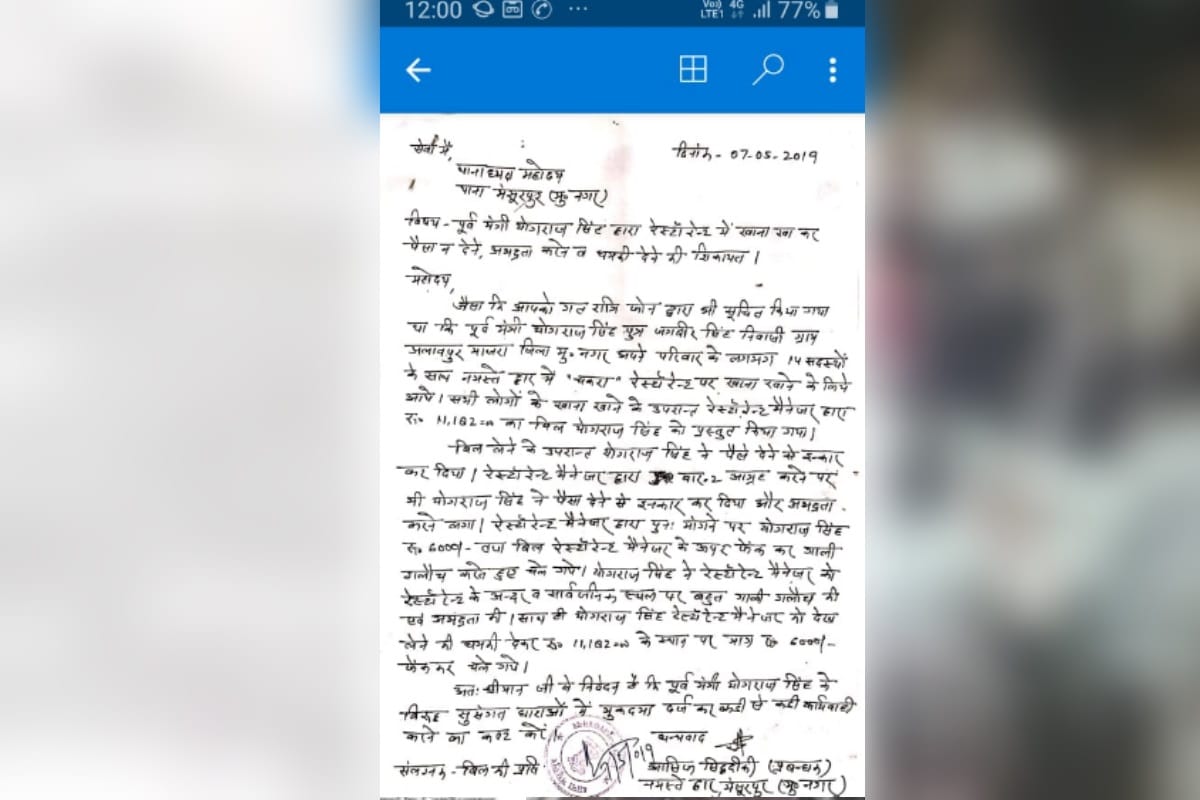 12:00 ... Vo)) LTE1 4G 77%
सेवा में, दिनांक - 07-05-2019
थानाध्यक्ष महोदय
थाना मंसूरपुर (मु० नगर)
विषय - पूर्व मंत्री योगराज सिंह द्वारा रेस्टोरेन्ट में खाना खा कर
पैसा न देने, अभद्रता करने व धमकी देने की शिकायत।
महोदय,
जैसा कि आपको गत रात्रि फोन द्वारा भी सूचित किया गया
था कि पूर्व मंत्री योगराज सिंह पुत्र जगबीर सिंह निवासी ग्राम
अलावपुर माजरा जिला मु० नगर अपने परिवार के लगभग 14 सदस्यों
के साथ नमस्ते द्वार में "चकरा" रेस्टोरेन्ट पर खाना खाने के लिये
आये। सभी लोगों के खाना खाने के उपरान्त रेस्टोरेन्ट मैनेजर द्वारा
रु० 11,182=00 का बिल योगराज सिंह को प्रस्तुत किया गया।
बिल लेने के उपरान्त योगराज सिंह ने पैसे देने से इन्कार
कर दिया। रेस्टोरेन्ट मैनेजर द्वारा बार-2 आग्रह करने पर
भी योगराज सिंह ने पैसा देने से इनकार कर दिया और अभद्रता
करने लगा। रेस्टोरेन्ट मैनेजर द्वारा पुनः मांगने पर योगराज सिंह
रु० 6000/- तथा बिल रेस्टोरेन्ट मैनेजर के ऊपर फेंक कर गाली
गलौच करते हुए चले गये। योगराज सिंह ने रेस्टोरेन्ट मैनेजर को
रेस्टोरेन्ट के अन्दर व सार्वजनिक स्थल पर बहुत गाली गलौच की
एवं अभद्रता की। साथ ही योगराज सिंह रेस्टोरेन्ट मैनेजर को देख
लेने की धमकी देकर रु० 11,182=00 के स्थान पर मात्र रु० 6000/-
फेंककर चले गये।
अतः श्रीमान जी से निवेदन है कि पूर्व मंत्री योगराज सिंह के
विरुद्ध सुसंगत धाराओं में मुकदमा दर्ज कर कडी से कडी कार्यवाही
करने का कष्ट करें। धन्यवाद
संलग्नक - बिल की प्रति आसिफ सिद्दीकी (प्रबन्धक)
नमस्ते द्वार, मंसूरपुर (मु० नगर)